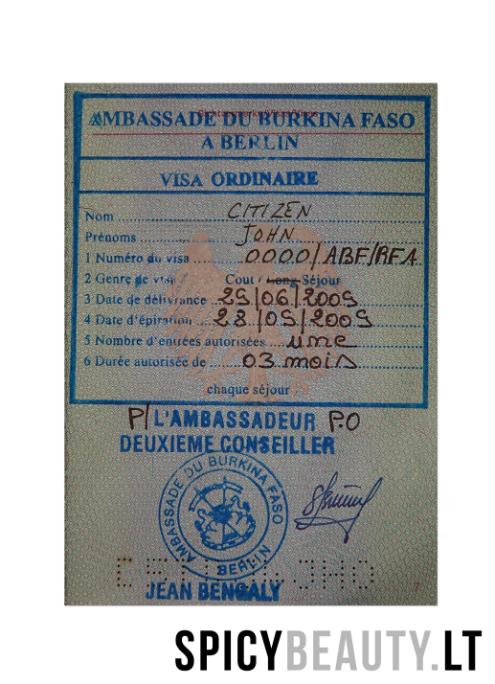 AMBASSADE DU BURKINA FASO
A BERLIN
VISA ORDINAIRE
Nom CITIZEN
Prénoms JOHN
1 Numéro du visa 0000/ABF/RFA
2 Genre de visa Court / Long Séjour
3 Date de délivrance 29/06/2009
4 Date d'épiration 28/09/2009
5 Nombre d'entrées autorisées une
6 Durée autorisée de 03 mois
chaque séjour
P/ L'AMBASSADEUR P.O
DEUXIEME CONSEILLER
AMBASSADE DU BURKINA FASO
BERLIN
JEAN BENGALY
SPICYBEAUTY.LT